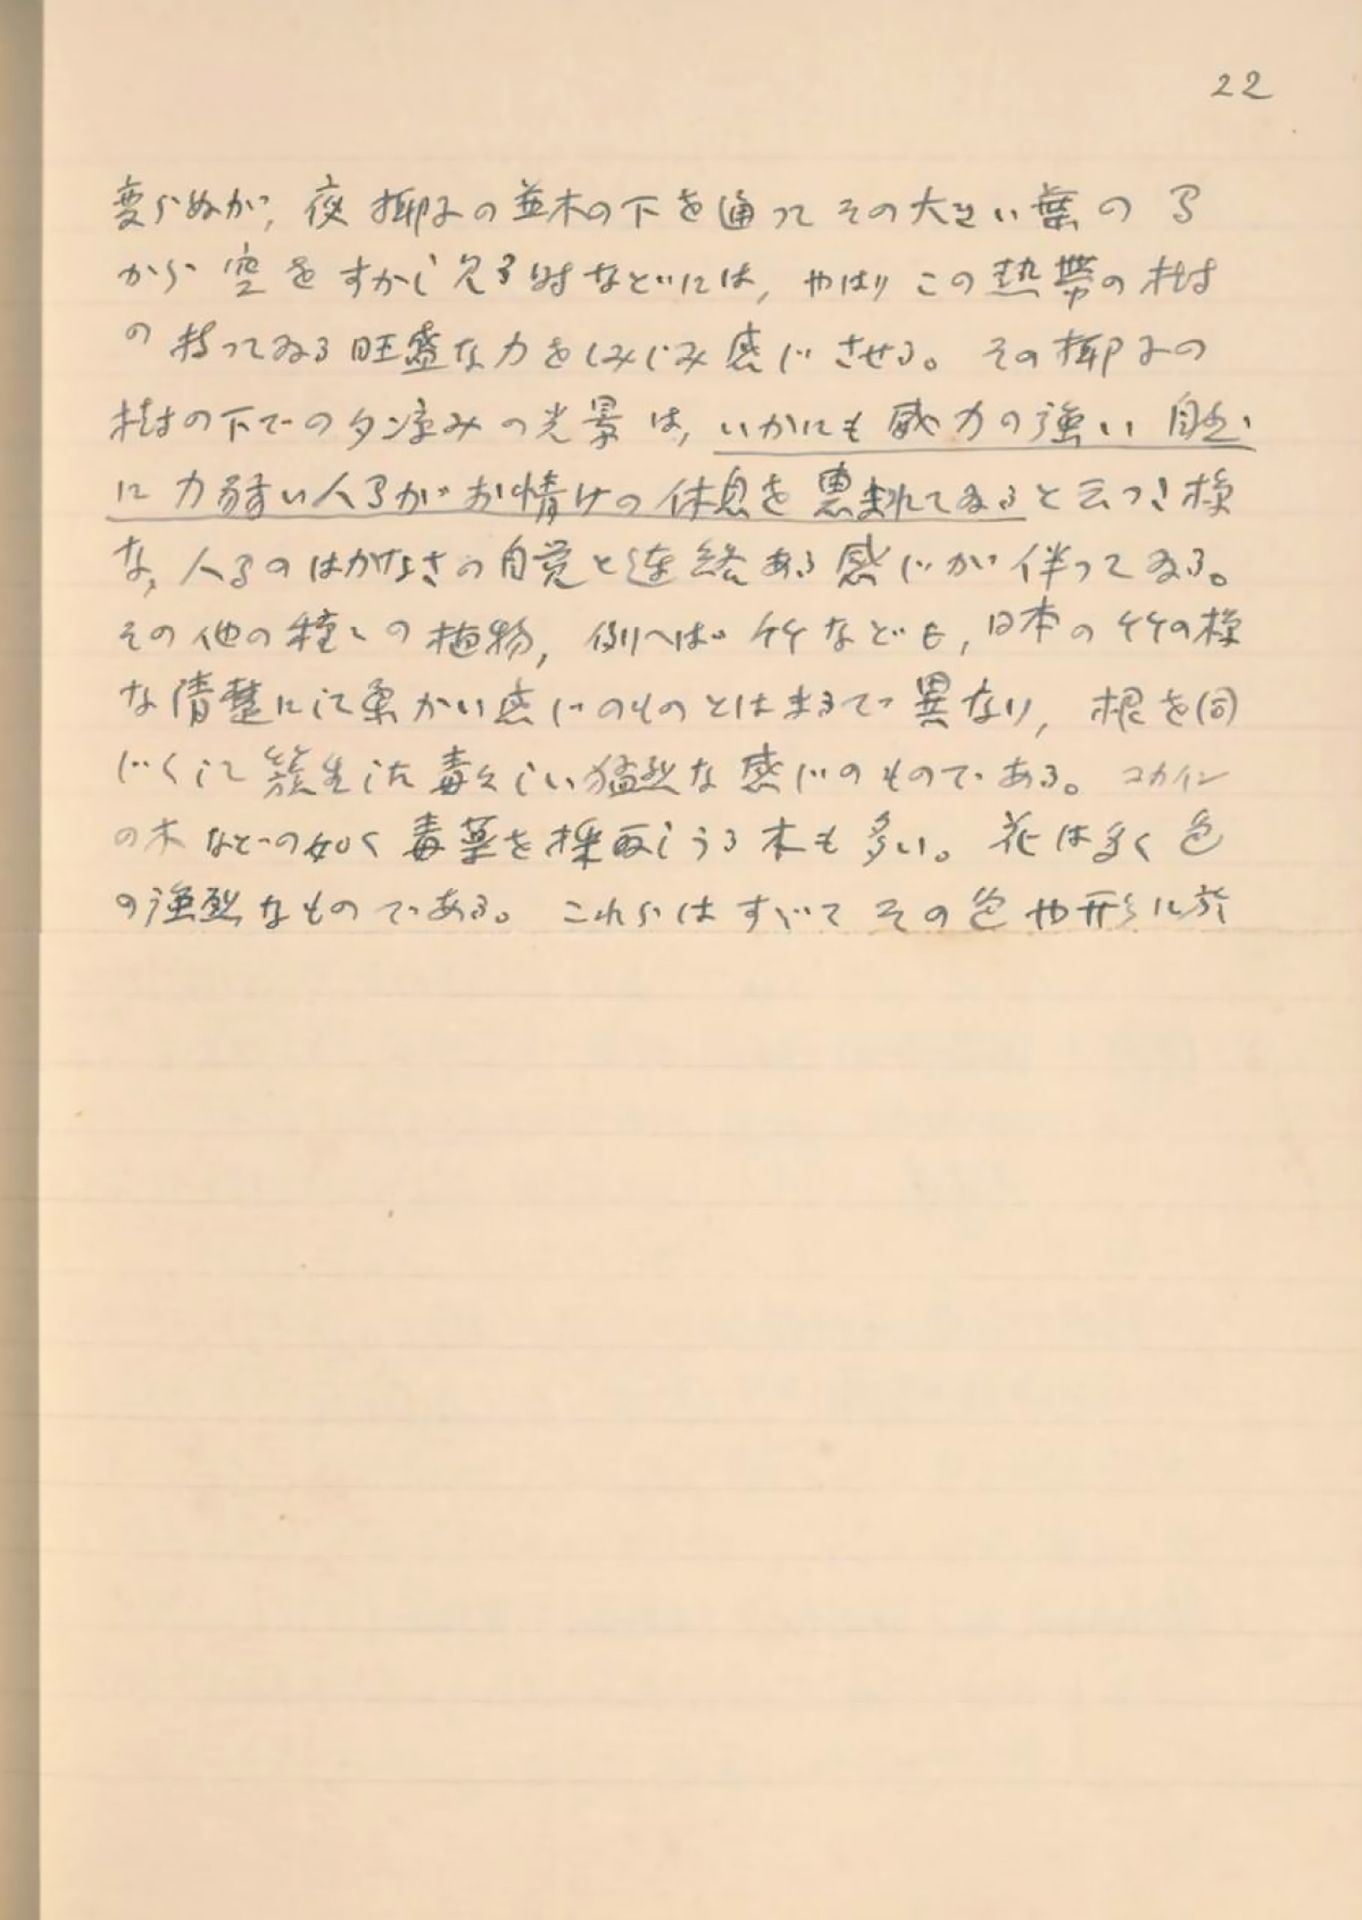 22
変らぬが, 夜 椰子の並木の下を通って その大きい葉の間
から 空をすかし見る時などには, やはり この熱帯の樹
の持ってゐる旺盛な力をしみじみ感じさせる。 その椰子の
樹の下での夕涼みの光景は, いかにも威力の強い自然
に力弱い人間がお情けの休息を恵まれてゐると云つた様
な, 人間のはかなさの自覚と連絡ある感じが伴ってゐる。
その他の種々の植物, 例へば竹なども, 日本の竹の様
な清楚にして柔かい感じのものとはまるで異なり, 根を同
じくして簇生した毒々しい猛烈な感じのものである。 コカイン
の木などの如く毒薬を採取しうる木も多い。 花は多く色
の強烈なものである。 これらはすべて その色や形に於